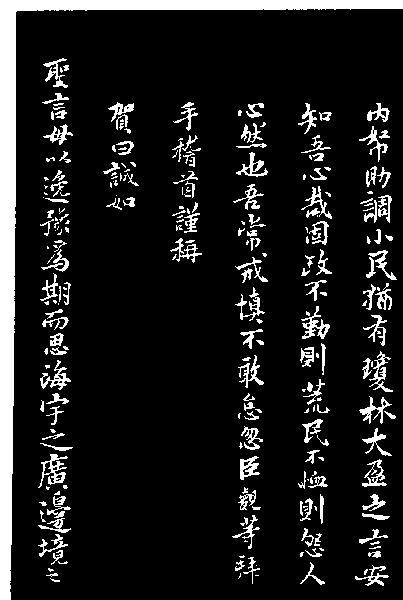 内帑助調小民猶有瓊林大盈之言安
知吾心哉國政不勤則荒民不恤則怨人
心然也吾常戒慎不敢怠忽臣觀等拜
手稽首謹稱
賀曰誠如
聖言毋以逸豫為期而思海宇之廣邊境之